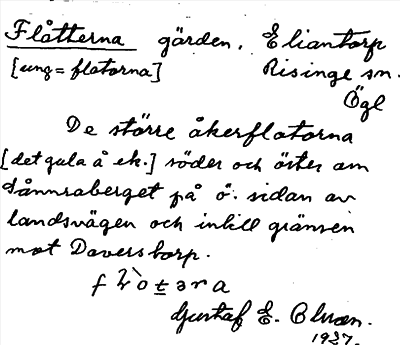 Flåtterna gärden. Eliantorp
[ung = flatorna] Risinge sn.
Ögl
De större åkerflatorna
[det gula å ek.] söder och öster om
Tånnraberget på ö. sidan av
landsvägen och intill gränsen
mot Daverstorp.
Gustaf E.
1937.